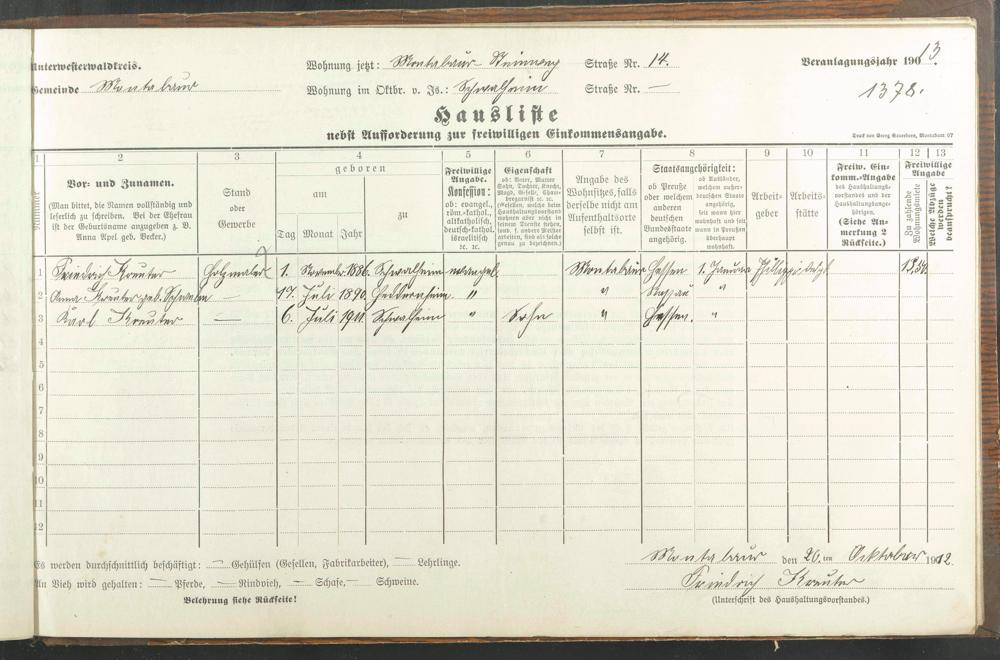 Unterwesterwaldkreis. Wohnung jetzt: Montabaur- Steinweg Straße Nr. 14. Veranlagungsjahr 1913.
Gemeinde Montabaur Wohnung im Oktbr. v. Js.: Schwalheim Straße Nr. — 1378.
Hausliste
nebst Aufforderung zur freiwilligen Einkommensangabe.
Druck von Georg Sauerborn, Montabaur 07
1 2 3 4 5 6 7 8 9 10 11 12 13
Nummer
Vor- und Zunamen.
(Man bittet, die Namen vollständig und
leserlich zu schreiben. Bei der Ehefrau
ist der Geburtsname anzugeben z. B.
Anna Apel geb. Becker.)
Stand
oder
Gewerbe
geboren
am
zu
Tag Monat Jahr
Freiwillige
Angabe.
Konfession:
ob: evangel.,
röm.-kathol.,
altkatholisch,
deutsch-kathol.
israelitisch
ec. ec.
Eigenschaft
ob: Vater, Mutter
Sohn, Tochter, Knecht,
Magd, Geselle,
Angabe des
Wohnsitzes, falls
derselbe nicht am
Aufenthaltsorte
selbst ist.
Staatsangehörigkeit:
ob Preuße
oder welchem
anderen
deutschen
Bundesstaate
angehörig.
ob Ausländer,
welchem außer-
deutschen Staate
angehörig,
seit wann hier
wohnhaft und
seit wann in
Preußen
überhaupt
wohnhaft.
Arbeit-
geber
Arbeits-
stätte
Freiw. Ein-
komm.-Angabe
des Haushaltungs-
vorstandes und der
Haushaltungsange-
hörigen.
(Siehe An-
merkung 2
Rückseite.)
Freiwillige
Angabe
Zu zahlende
Wohnungsmiete
Welche Abzüge
werden
beansprucht?
1 Friedrich Kreuter 1. November 1886. Schwalheim evangel. Montabaur Hessen 1. Januar
2 Anna Kreuter geb. — 17. Juli 1890. Heddernheim " " Nassau "
3 Karl Kreuter — 6. Juli 1911. Schwalheim " Sohn " Hessen. "
4
5
6
7
8
9
10
11
12
Es werden durchschnittlich beschäftigt: — Gehülfen (Gesellen, Fabrikarbeiter), — Lehrlinge.
An Vieh wird gehalten: — Pferde, — Rindvieh, — Schafe, — Schweine.
Belehrung siehe Rückseite!
Montabaur den 20. ten Oktober 1912.
Friedrich Kreuter
(Unterschrift des Haushaltungsvorstandes.)